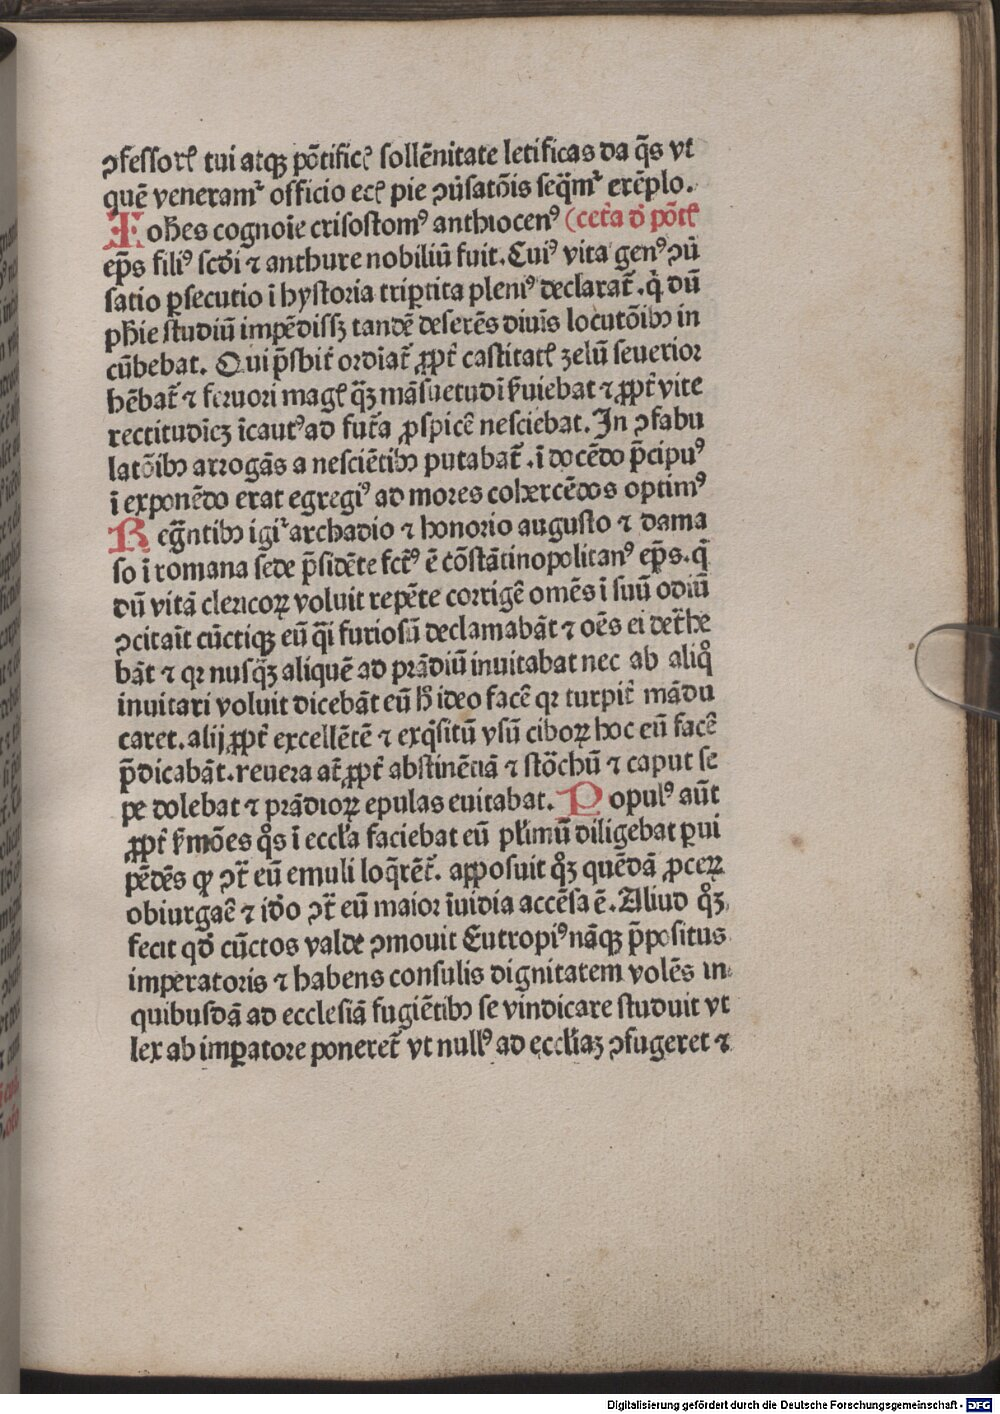 ꝯfessorꝭ tui atqꝫ põtificꝭ sollẽnitate letificas da q̃s vt
quẽ veneramᷣ officio ecꝭ pie ꝯũsatõis seq̃mᷣ exẽplo.
Ioh̃es cognoĩe crisostomꝰ anthiocenꝰ (cet̃a ď põtꝭ
ep̃s filiꝰ scďi ⁊ anthure nobiliũ fuit. Cuiꝰ vita genꝰ ꝯũ
satio ꝑsecutio ĩ hystoria triꝑtita pleniꝰ declarat̃. q̇ dũ
ph̃ie studiũ impẽdissꝫ tandẽ deserẽs diuĩs locutõibꝫ in
cũbebat. Qui p̃sbit̃ ordĩat̃ ꝓpt̃ castitatꝭ zelũ seuerior
hẽbat̃ ⁊ feruori magꝭ q̃ꝫ mãsuetudĩ ẜuiebat ⁊ ꝓpt̃ vite
rectitudĩeꝫ ĩcautꝰ ad fut̃a ꝓspicẽ nesciebat. In ꝯfabu
latõibꝫ arrogãs a nesciẽtibꝫ putabat̃. ĩ docẽdo p̃cipuꝰ
ĩ exponẽdo erat egregiꝰ ad mores cohercẽdos optimꝰ
Reg̃ntibꝫ igiᷣ archadio ⁊ honorio augusto ⁊ dama
so ĩ romana sede p̃sidẽte fct̃ꝰ ẽ cõstãtinopolitanꝰ ep̃s. q̇
dũ vitã clericoꝝ voluit repẽte corrigẽ omẽs ĩ suũ odiũ
ꝯcitaĩt cũctiqꝫ eũ q̃i furiosũ declamabãt ⁊ oẽs ei det̃he
bãt ⁊ qꝛ nusq̃ꝫ aliquẽ ad prãdiũ inuitabat nec ab aliq̊
inuitari voluit dicebãt eũ h̃ ideo facẽ qꝛ turpit̃ mãdu
caret. alij ꝓpt̃ excellẽtẽ ⁊ exq̇sitũ vsũ ciboꝝ hoc eũ facẽ
p̃dicabãt. reuera at̃ ꝓpt̃ abstinẽciã ⁊ stõchũ ⁊ caput se
pe dolebat ⁊ prãdioꝝ epulas euitabat. Populꝰ aũt
ꝓpt̃ ẜmões q̊s ĩ eccľa faciebat eũ pľimũ diligebat ꝑui
pẽdẽs ꝙ ꝯt̃ eũ emuli loq̃rẽt̃. apposuit q̊ꝫ quẽdã ꝓceꝝ
obiurgaẽ ⁊ iďo ꝯt̃ eũ maior ĩuidia accẽsa ẽ. Aliud q̊ꝫ
fecit qď cũctos valde ꝯmouit Eutropiꝰ nãqꝫ p̃positus
imperatoris ⁊ habens consulis dignitatem volẽs in
quibusdã ad ecclesiã fugiẽtibꝫ se vindicare studuit vt
lex ab imꝑatore poneret̃ vt nullꝰ ad eccľiaꝫ ꝯfugeret ⁊
Digitalisierung gefördert durch die Deutsche Forschungsgemeinschaft - DFG